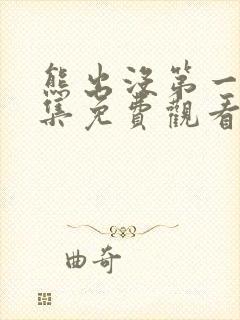 熊出沒第一
集免費觀看
曲奇